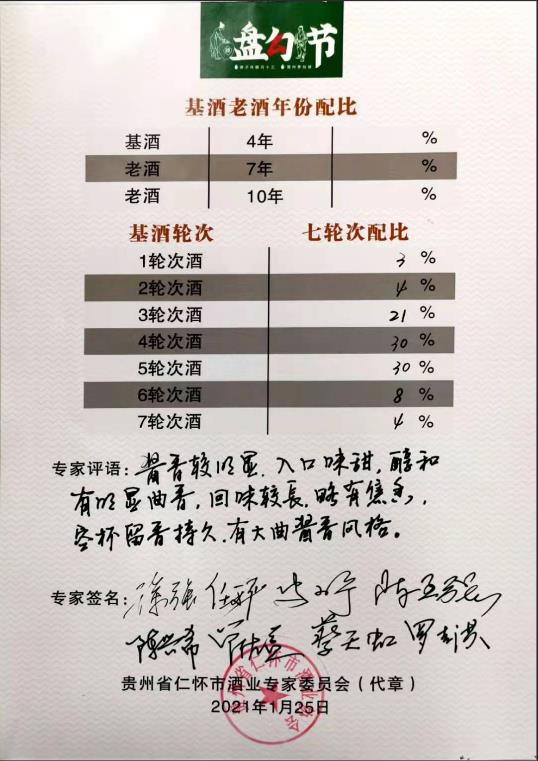 盘勾节
基酒老酒年份配比
基酒 4年 %
老酒 7年 %
老酒 10年 %
基酒轮次 七轮次配比
1轮次酒 3 %
2轮次酒 4 %
3轮次酒 21 %
4轮次酒 30 %
5轮次酒 30 %
6轮次酒 8 %
7轮次酒 4 %
专家评语:酱香较明显,入口味甜,醇和
有明显曲香,回味较长,略有焦香,
空杯留香持久,有大曲酱香风格。
专家签名:
蔡天虹
贵州省仁怀市酒业专家委员会(代章)
2021年1月25日